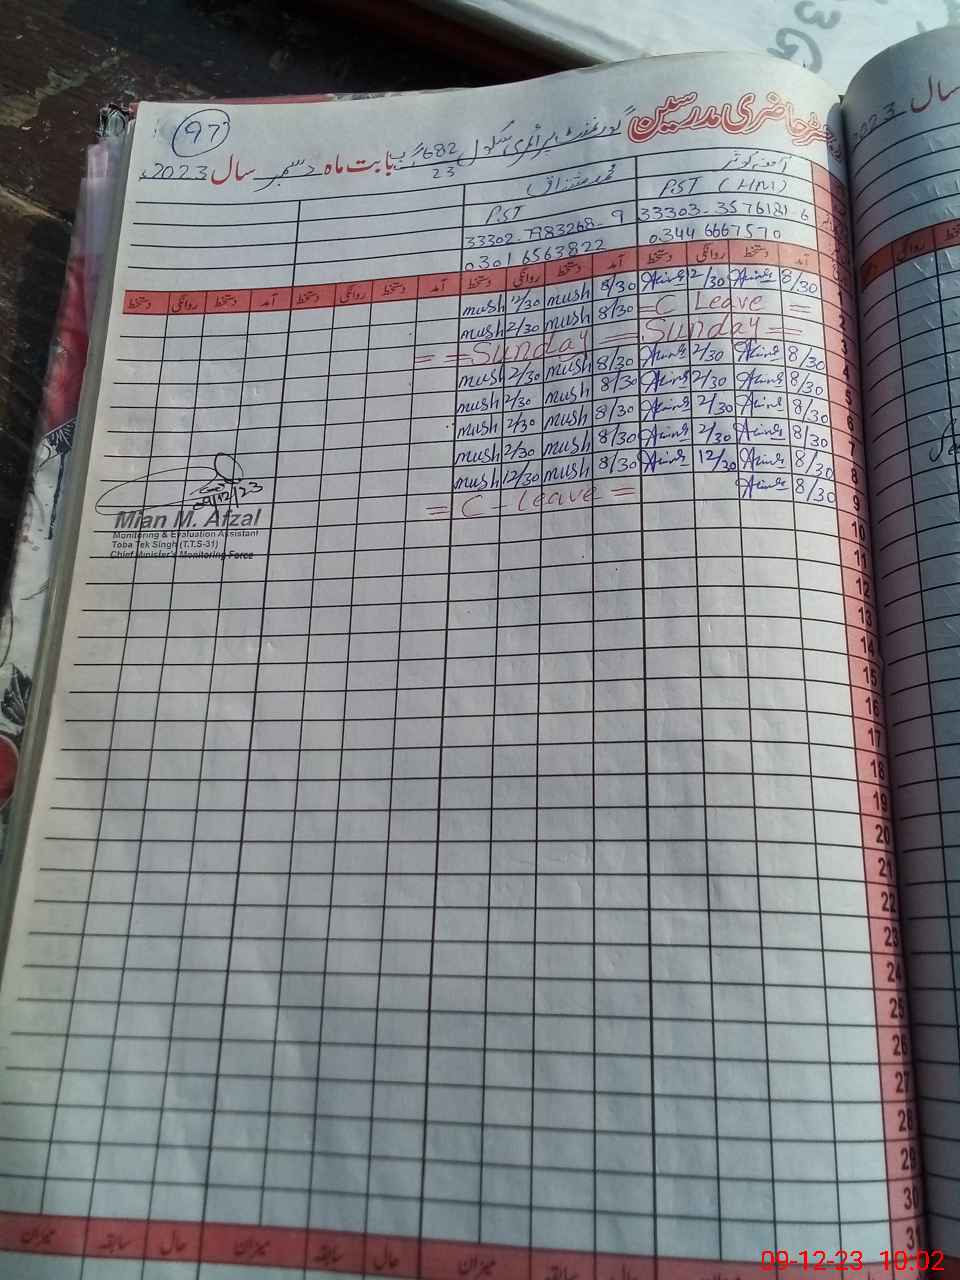 97
رجسٹر حاضری مدرسین گورنمنٹ پرائمری سکول 682/23 گ ب بابت ماہ دسمبر سال 2023ء
سال 2023
آمنہ کوثر
PST (HM)
33303-3576181-6
0344 6667570
PST
33302-7983268-9
0301 6563822
آمد دستخط روانگی دستخط آمد دستخط روانگی دستخط آمد دستخط روانگی دستخط آمد دستخط روانگی دستخط
1 8/30 2/30 8/30 mush 12/30 mush
2 = C Leave = 8/30 mush 2/30 mush
3 = Sunday = = Sunday = =
4 8/30 2/30 8/30 mush 2/30 mush
5 8/30 2/30 8/30 mush 2/30 mush
6 8/30 2/30 8/30 mush 2/30 mush
7 8/30 2/30 8/30 mush 2/30 mush
8 8/30 12/30 8/30 mush 12/30 mush
9 8/30 = C - Leave =
10
11
12
13
14
15
16
17
18
19
20
21
22
23
24
25
26
27
28
29
30
31
09/12/23
Mian M. Afzal
Monitoring & Evaluation Assistant
Toba Tek Singh (T.T.S-31)
Chief Minister's Monitoring Force
حال سابقہ میزان حال سابقہ میزان حال سابقہ میزان
09-12-23 10:02